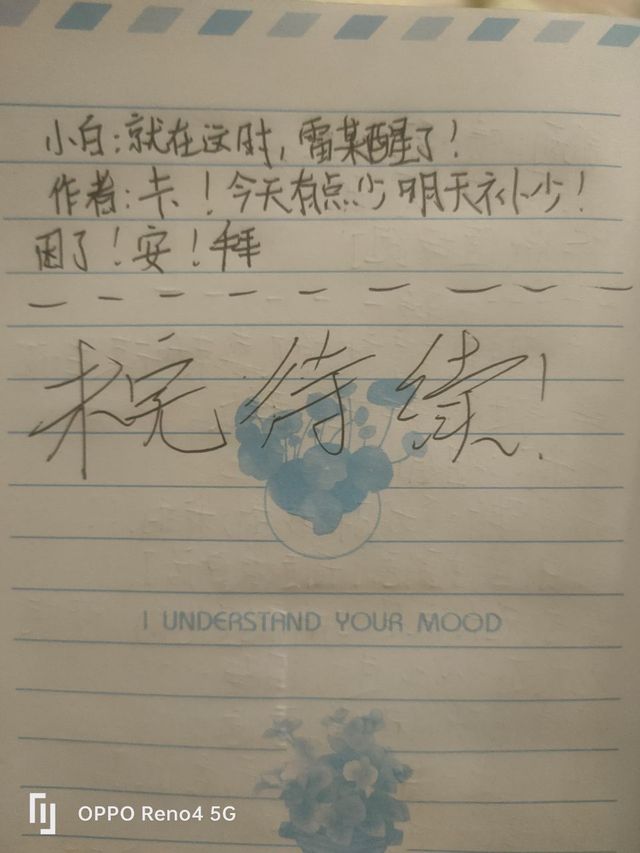 小白:就在这时,雷某醒了!
作者:卡!今天有点少明天补少!
困了!安!拜
未完待续!
I UNDERSTAND YOUR MOOD
OPPO Reno4 5G